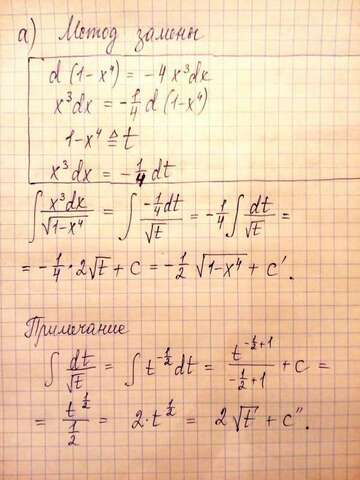 а) Метод замены
d(1-x⁴) = -4x³dx
x³dx = -1/4 d(1-x⁴)
1-x⁴ ≜ t
x³dx = -1/4 dt
∫ x³dx/√(1-x⁴) = ∫ (-1/4 dt)/√t = -1/4 ∫ dt/√t =
= -1/4 · 2√t + C = -1/2 √(1-x⁴) + C'.
Примечание
∫ dt/√t = ∫ t^(-1/2) dt = t^(-1/2+1)/(-1/2+1) + C =
= t^(1/2)/(1/2) = 2·t^(1/2) = 2√t + C''.